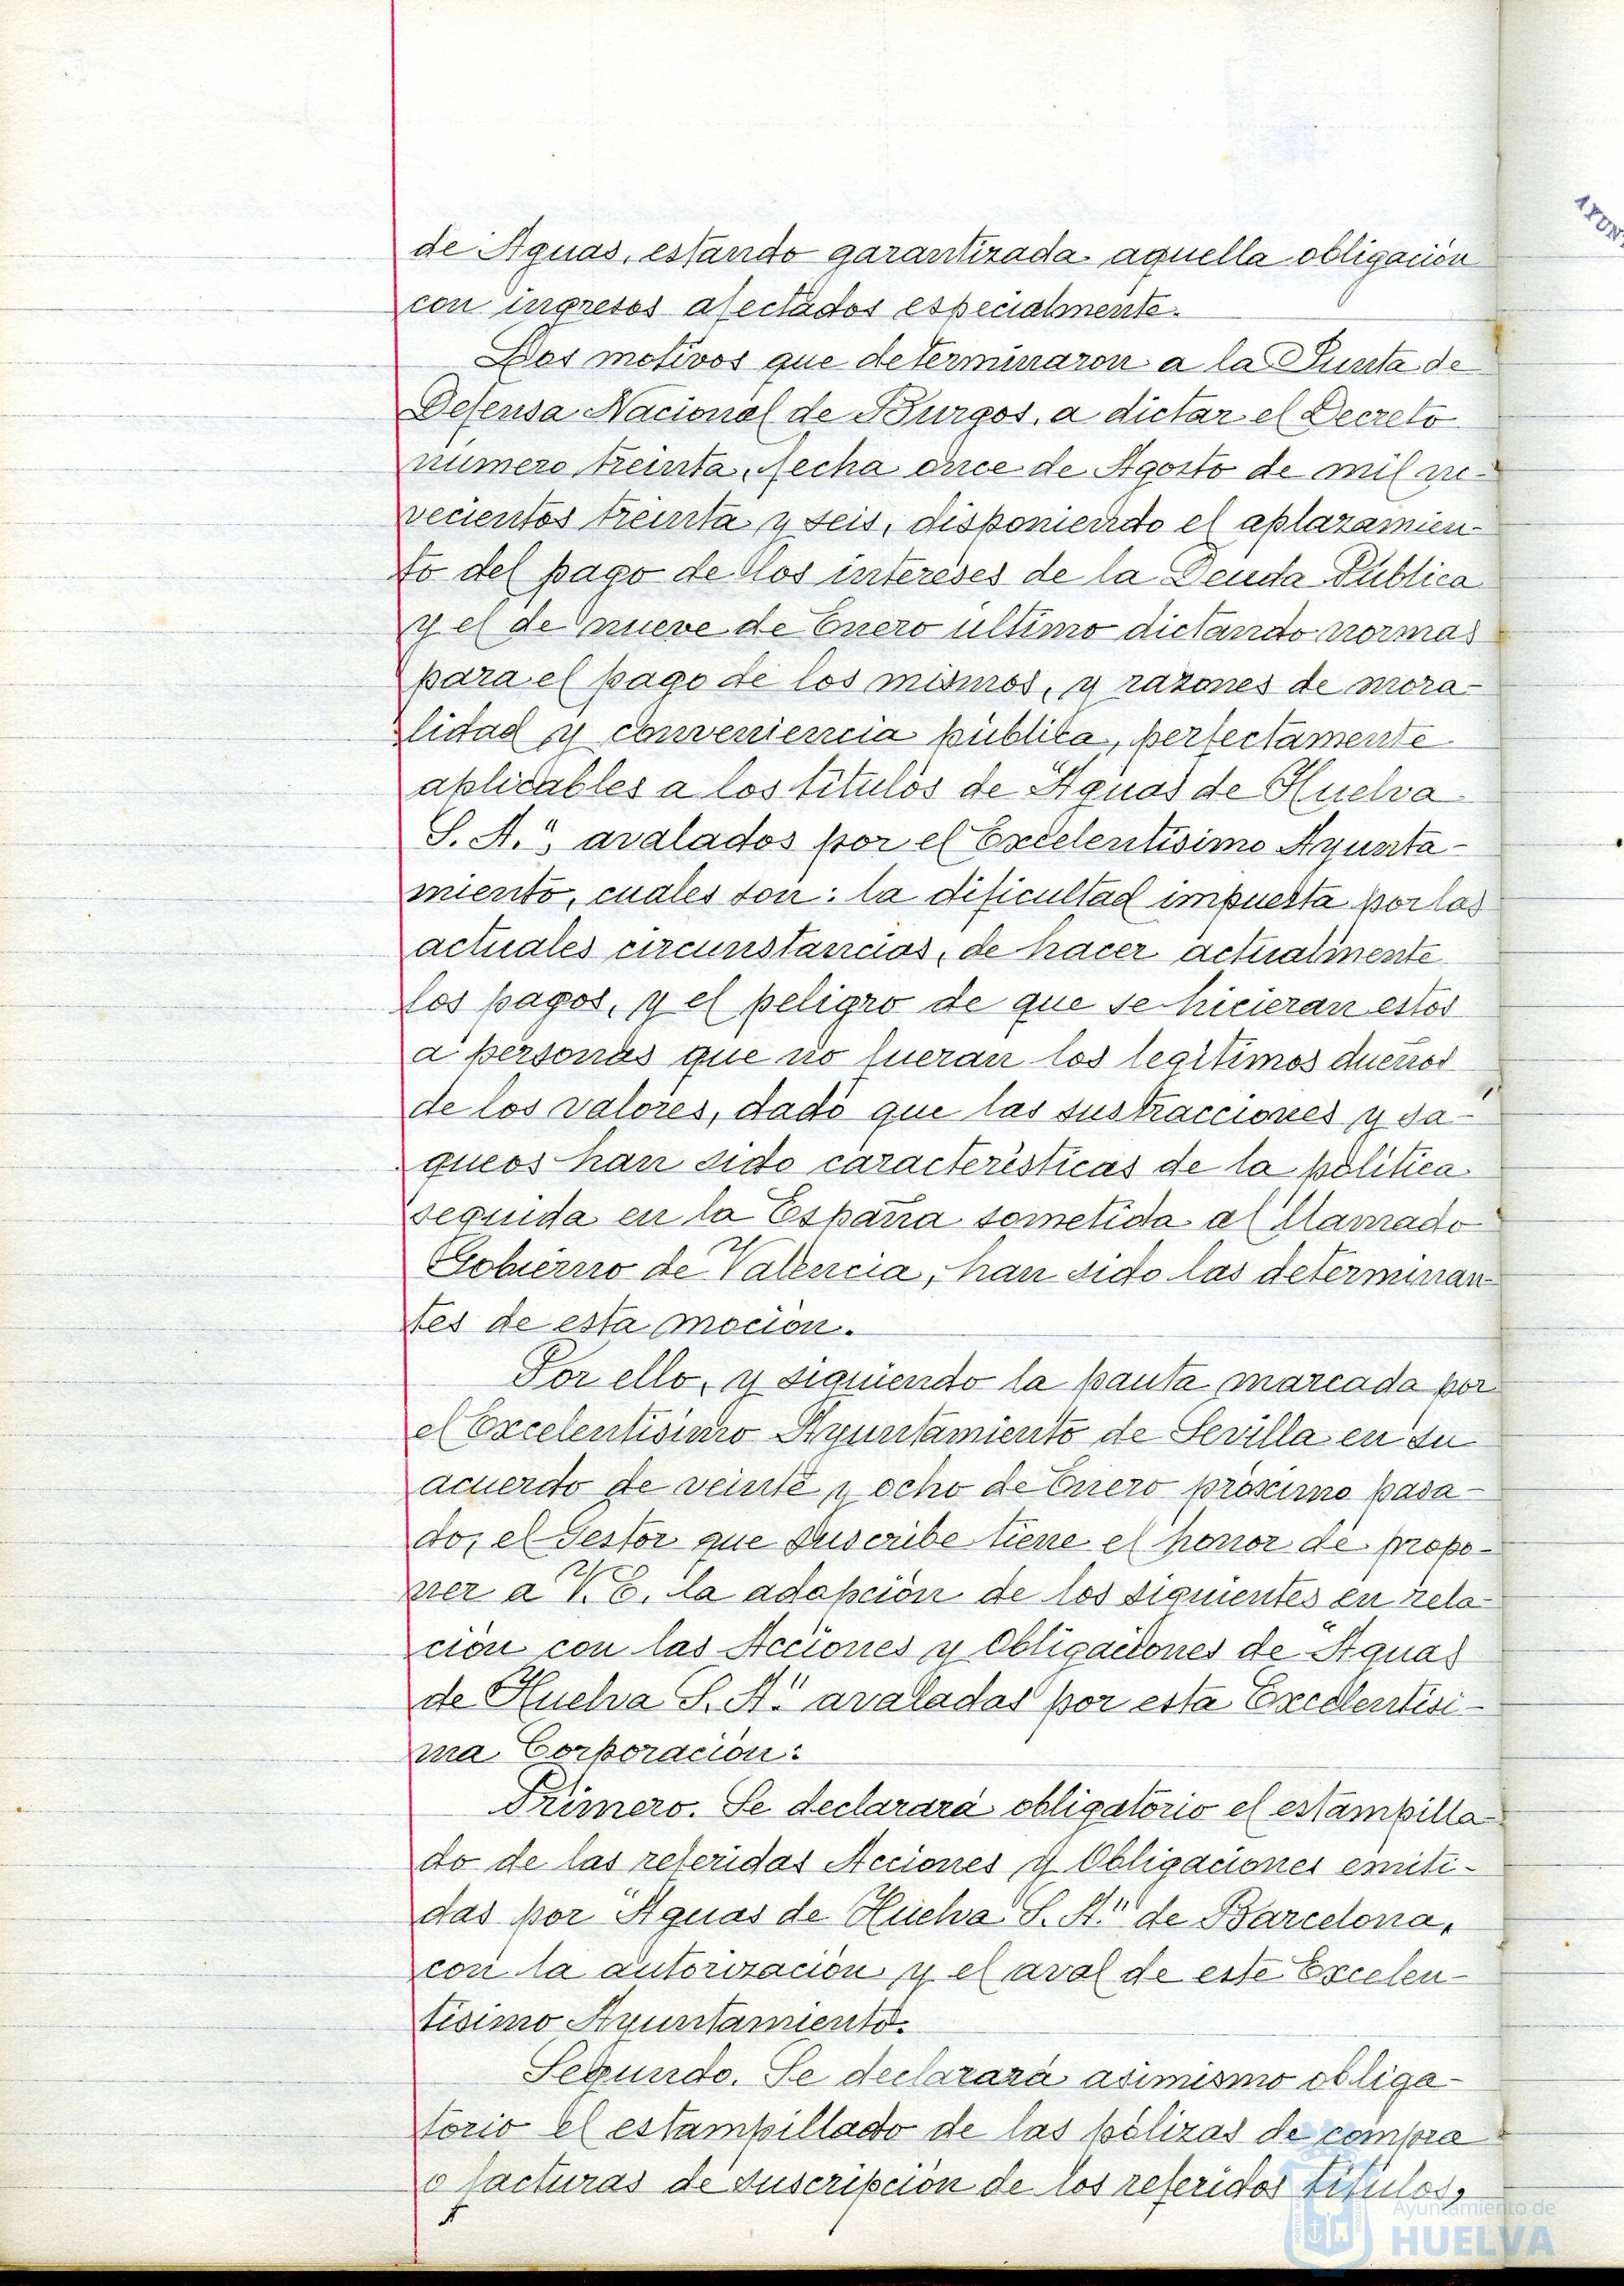 de Aguas, estando garantizada aquella obligación
con ingresos afectados especialmente.
Los motivos que determinaron a la Junta de
Defensa Nacional de Burgos, a dictar el Decreto
número treinta, fecha once de Agosto de mil no-
vecientos treinta y seis, disponiendo el aplazamien-
to del pago de los intereses de la Deuda Pública
y el de nueve de Enero último dictando normas
para el pago de los mismos, y razones de mora-
lidad y conveniencia pública, perfectamente
aplicables a los títulos de "Aguas de Huelva
S. A.", avalados por el Excelentísimo Ayunta-
miento, cuales son: la dificultad impuesta por las
actuales circunstancias, de hacer actualmente
los pagos, y el peligro de que se hicieran estos
a personas que no fueran los legítimos dueños
de los valores, dado que las sustracciones y sa-
queos han sido características de la política
seguida en la España sometida al llamado
Gobierno de Valencia, han sido las determinan-
tes de esta moción.
Por ello, y siguiendo la pauta marcada por
el Excelentísimo Ayuntamiento de Sevilla en su
acuerdo de veinte y ocho de Enero próximo pasa-
do, el Gestor que suscribe tiene el honor de propo-
ner a V. E. la adapción de los siguientes en rela-
ción con las Acciones y Obligaciones de "Aguas
de Huelva S. A." avaladas por esta Excelentísi-
ma Corporación:
Primero. Se declarará obligatorio el estampilla-
do de las referidas Acciones y Obligaciones emiti-
das por "Aguas de Huelva S. A." de Barcelona,
con la autorización y el aval de este Excelen-
tísimo Ayuntamiento.
Segundo. Se declarará asimismo obliga-
torio el estampillado de las pólizas de compra
o facturas de suscripción de los referidos títulos,
Ayuntamiento de
HUELVA